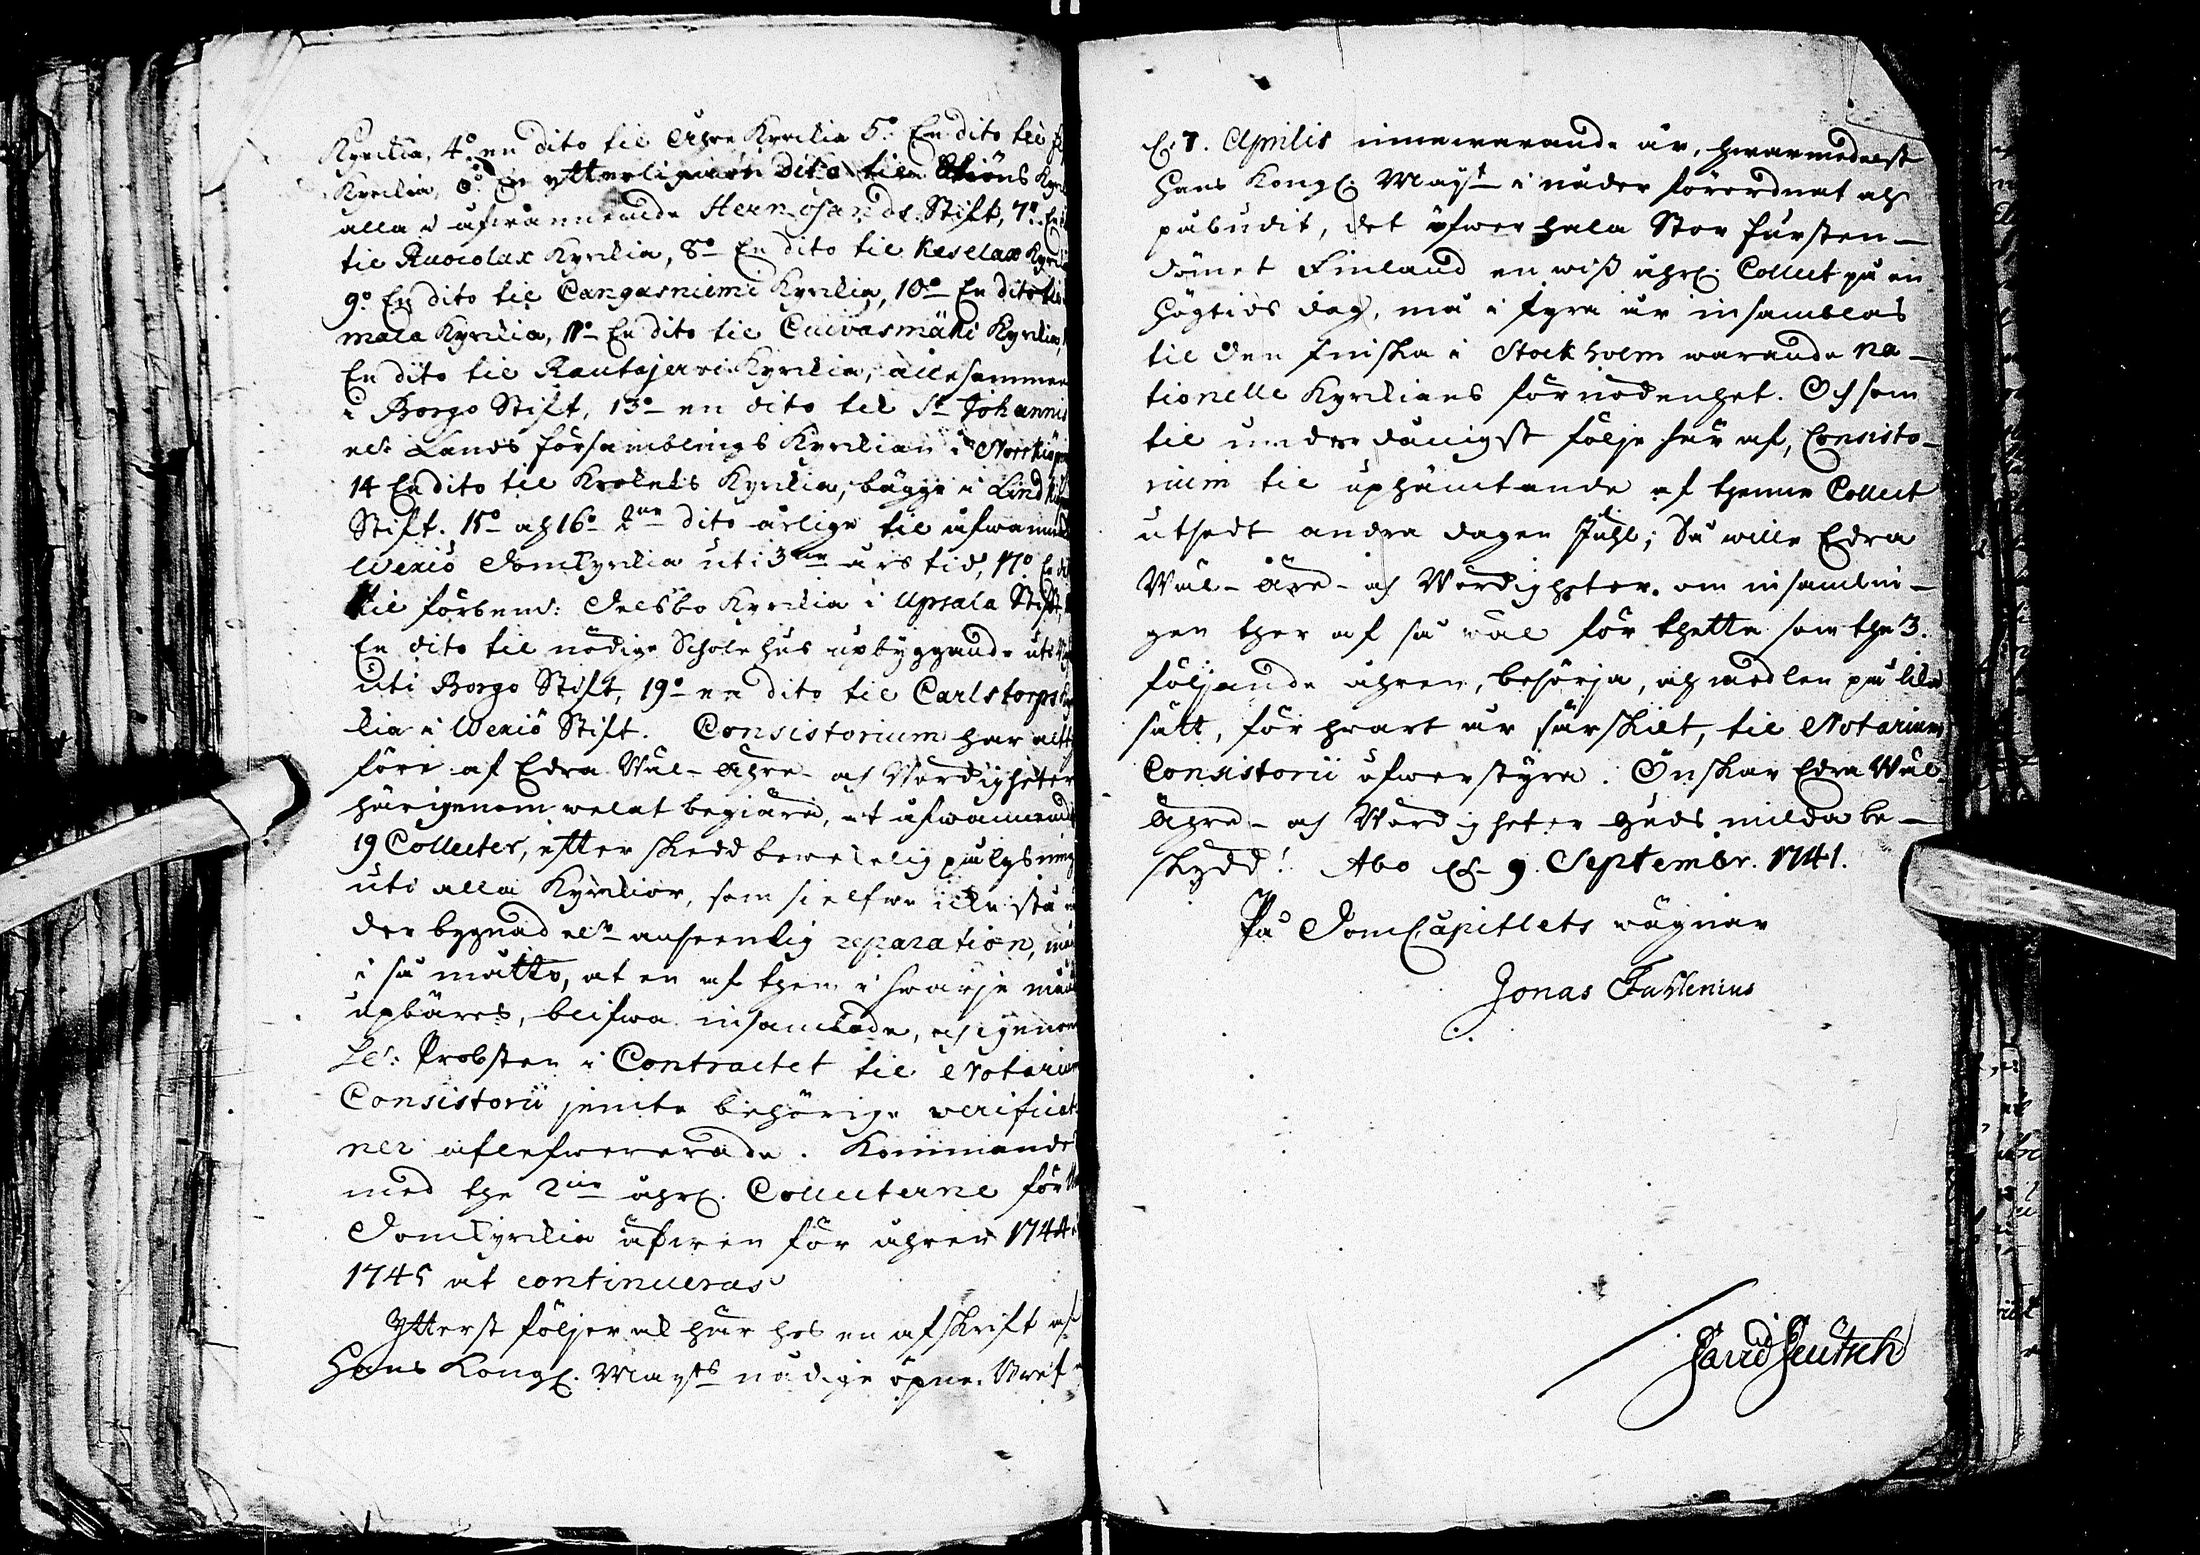 Kyrkia, 4:o en dito til Åhre Kyrkia 5:o En dito til
Kyrkia, 6:o En ytterligare dito til Kyrk
alla i ofwannemde Hernösands Stift, 7:o En
til Ruocolax Kyrkia, 8:o En dito til Keselax Kyrk
9:o En dito til Cangasniemi Kyrkia, 10:o En dito til
mala Kyrkia, 11:o En dito til Cuivasmäki Kyrkia,
En dito til Rautajerwi Kyrkia, allesamman
i Borgo Stift, 13:o en dito til S:t Johannis
el:r Lands församblings Kyrkian i Norrkiöp
14 En dito til Kyrkia, bägge i Lindkiö
Stift. 15:o och 16:o 2:ne dito årlige til ofwannem
Wexiö Domkyrkia uti 3:ne års tid, 17:o En di
til förbem:te Delsbo Kyrkia i Upsala Stift,
En dito til nödige Schole hus upbyggande uti
uti Borgo Stift, 19:o en dito til Carlstorps Kyr
kia i Wexiö Stift. Consistorium har alt
före af Edra Wäl- Ähre- och Wördigheter
härigenom welat begiära, at ofwannemde
19 Collecter, efter skedd bewekelig pålysning
uti alla Kyrkior, som sielfwe icke stå un
der bygnad el:r ansenlig reparation, må
i så måtto, at en af them i hwarje månad
upbäres, blifwa insamlade, och igenom
Probsten i Contractet til Notarium
Consistorii jemte behörige verificatio
ner aflefwererade. Kommande
med the 2:ne åhrl. Collecterne för
Domkyrkia äfwen för åhren 1744 o
1745 at continueras.
Ytterst följer ock här hos en afskrift af
Hans Kongl. May:ts nådige öpne Bref
af d. 7. Aprilis innewarande år, hwarmedelst
Hans Kongl. May:t i nåder förordnat och
påbudit, det öfwer hela Stor Fursten-
dömet Finland en wiss åhrl. Collect på en
högtids dag, må i fyra år insamblas
til den Finska i Stockholm warande na-
tionelle Kyrkians förnödenhet. Och som
til underdånigst följe här af, Consisto-
rium til uphämtande af thenne Collect
utsedt andra dagen Juhl; Så wille Edra
Wäl- Äre- och Wördigheter om insamlin-
gen ther af så wäl för thetta som the 3.
följande åhren, besörja, och medlen på lika
sätt, för hwart år särskilt, til Notarium
Consistorii öfwerstyra. Önskar Edra Wäl-
Ähre- och Wördigheter Guds milda be-
skydd! Åbo d. 9. Septembr. 1741.
På DomCapitlets wägnar
Jonas Fahlenius
David Deutsch